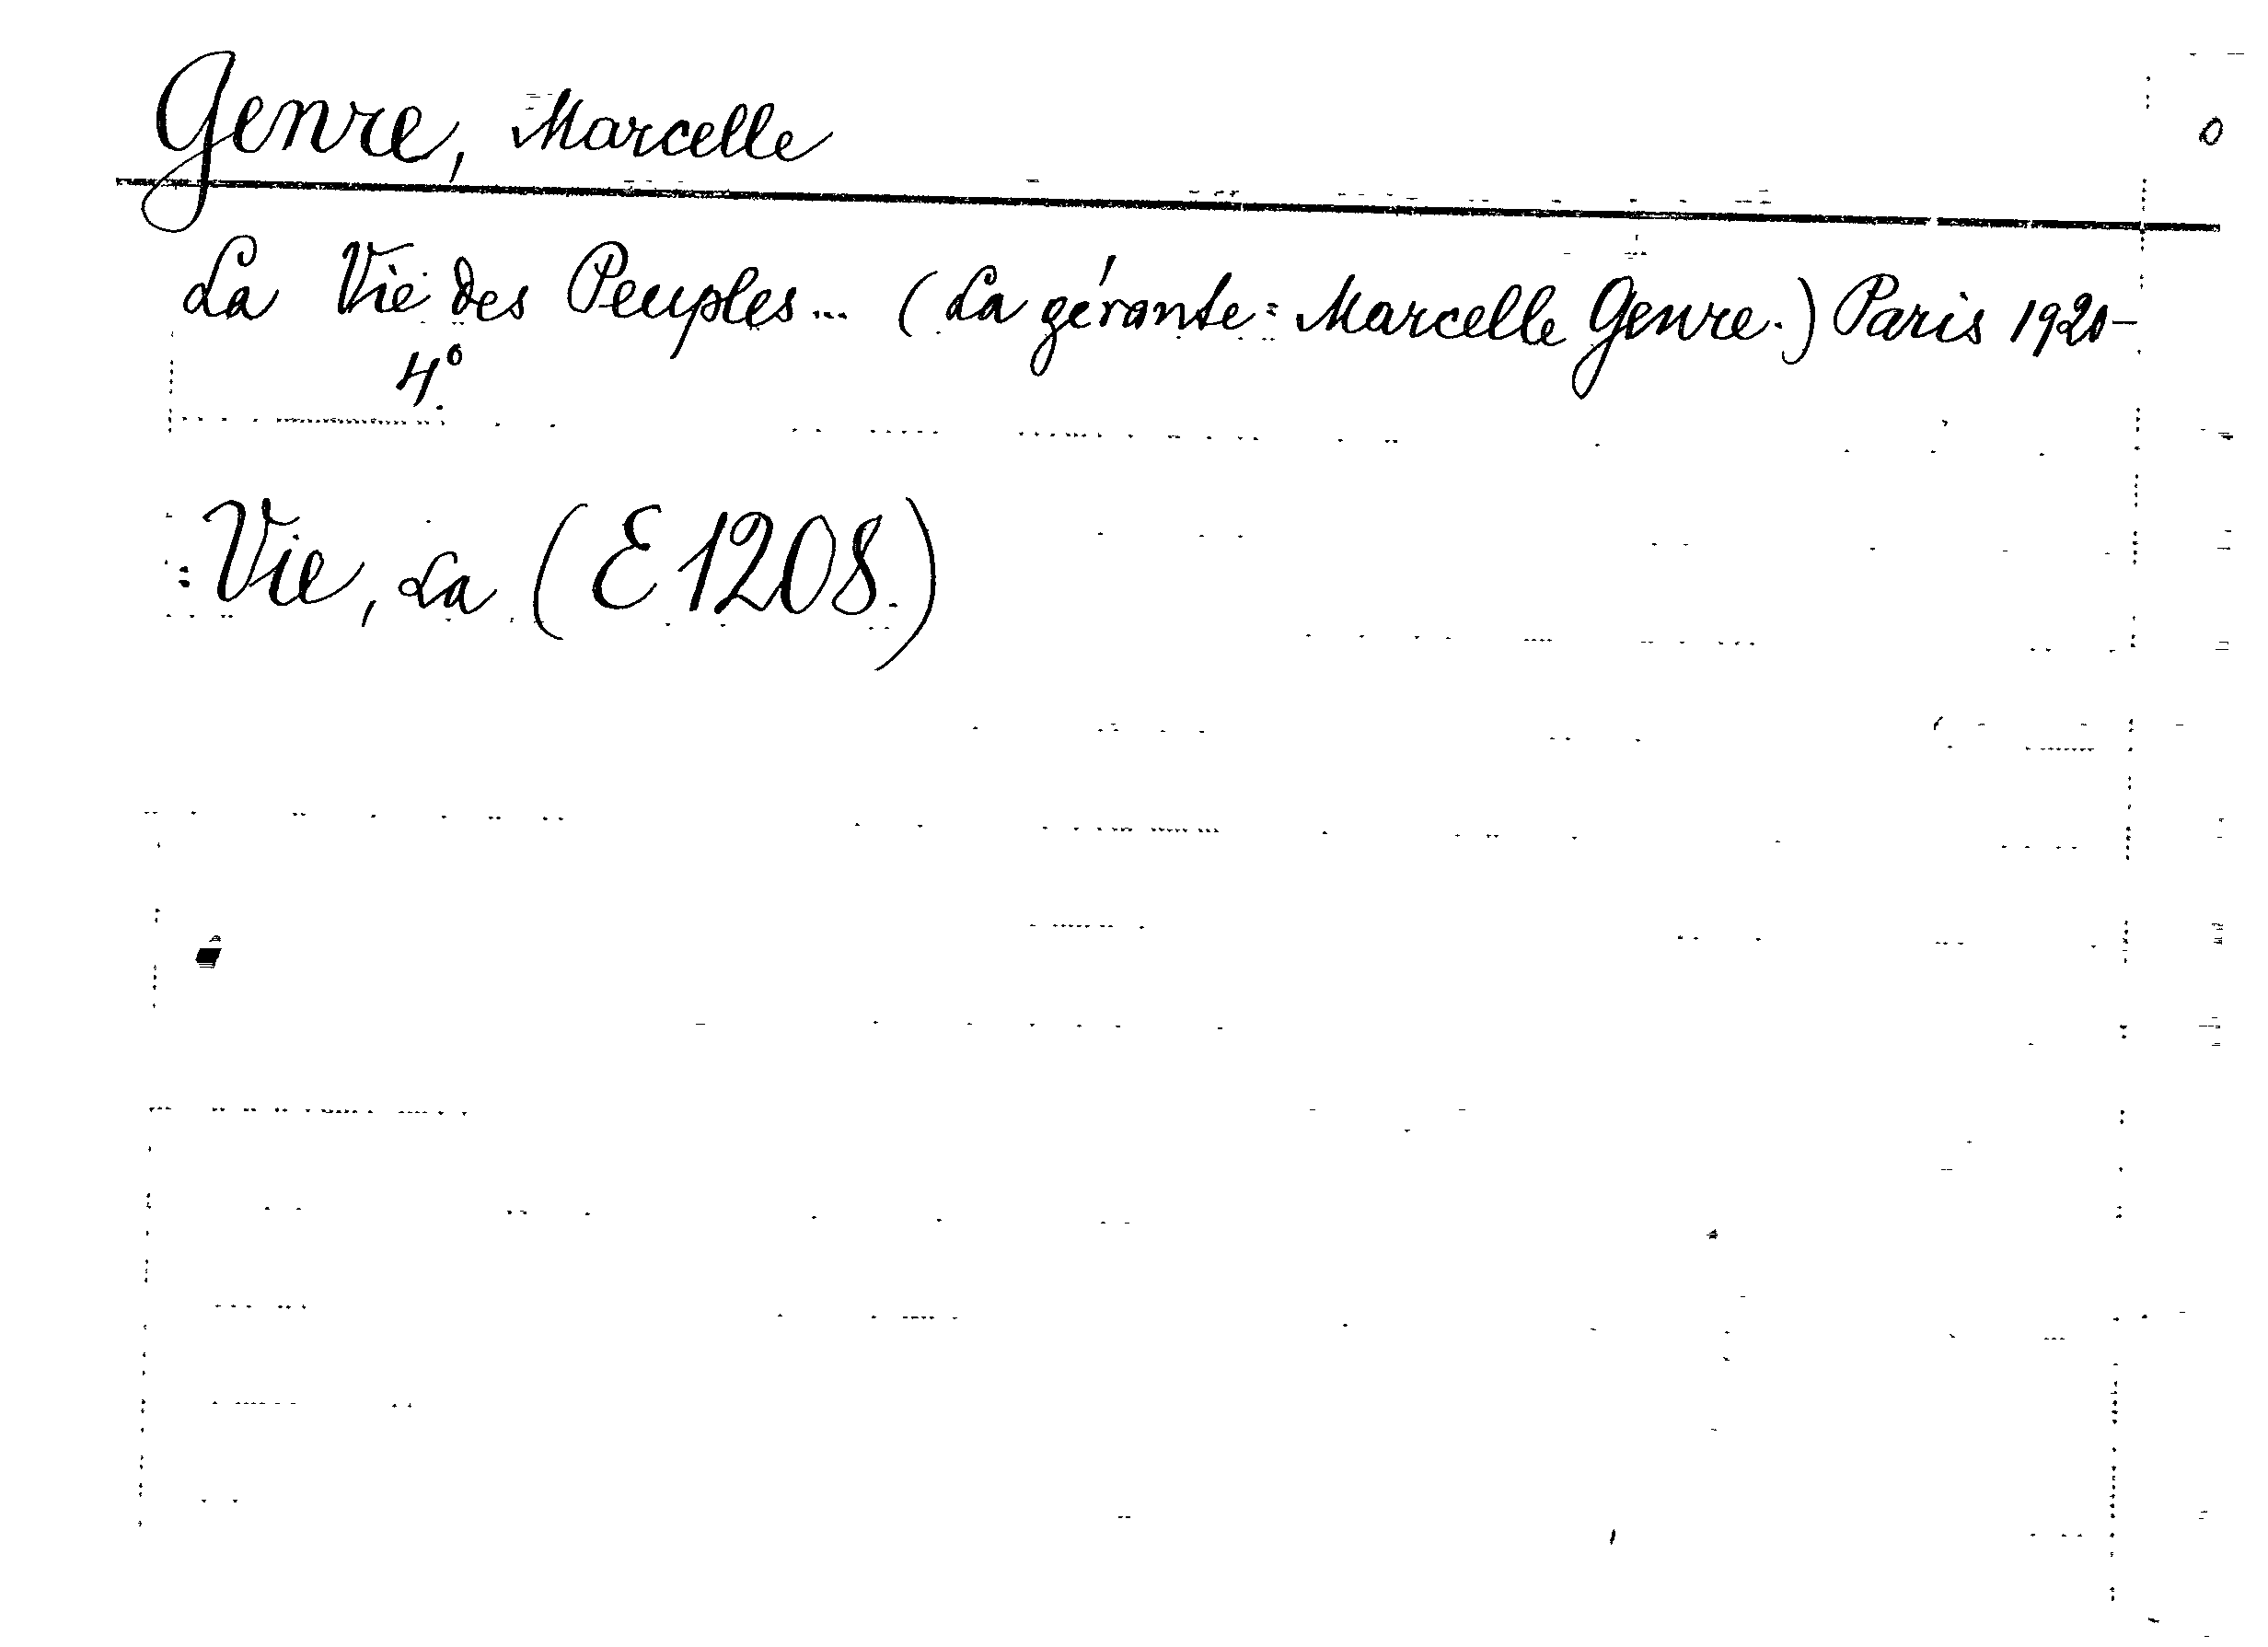 Genre, Marcelle
0
La Vie des Peuples... (La gérante: Marcelle Genre.) Paris 1920-
4º
Vie, La (E 1208)